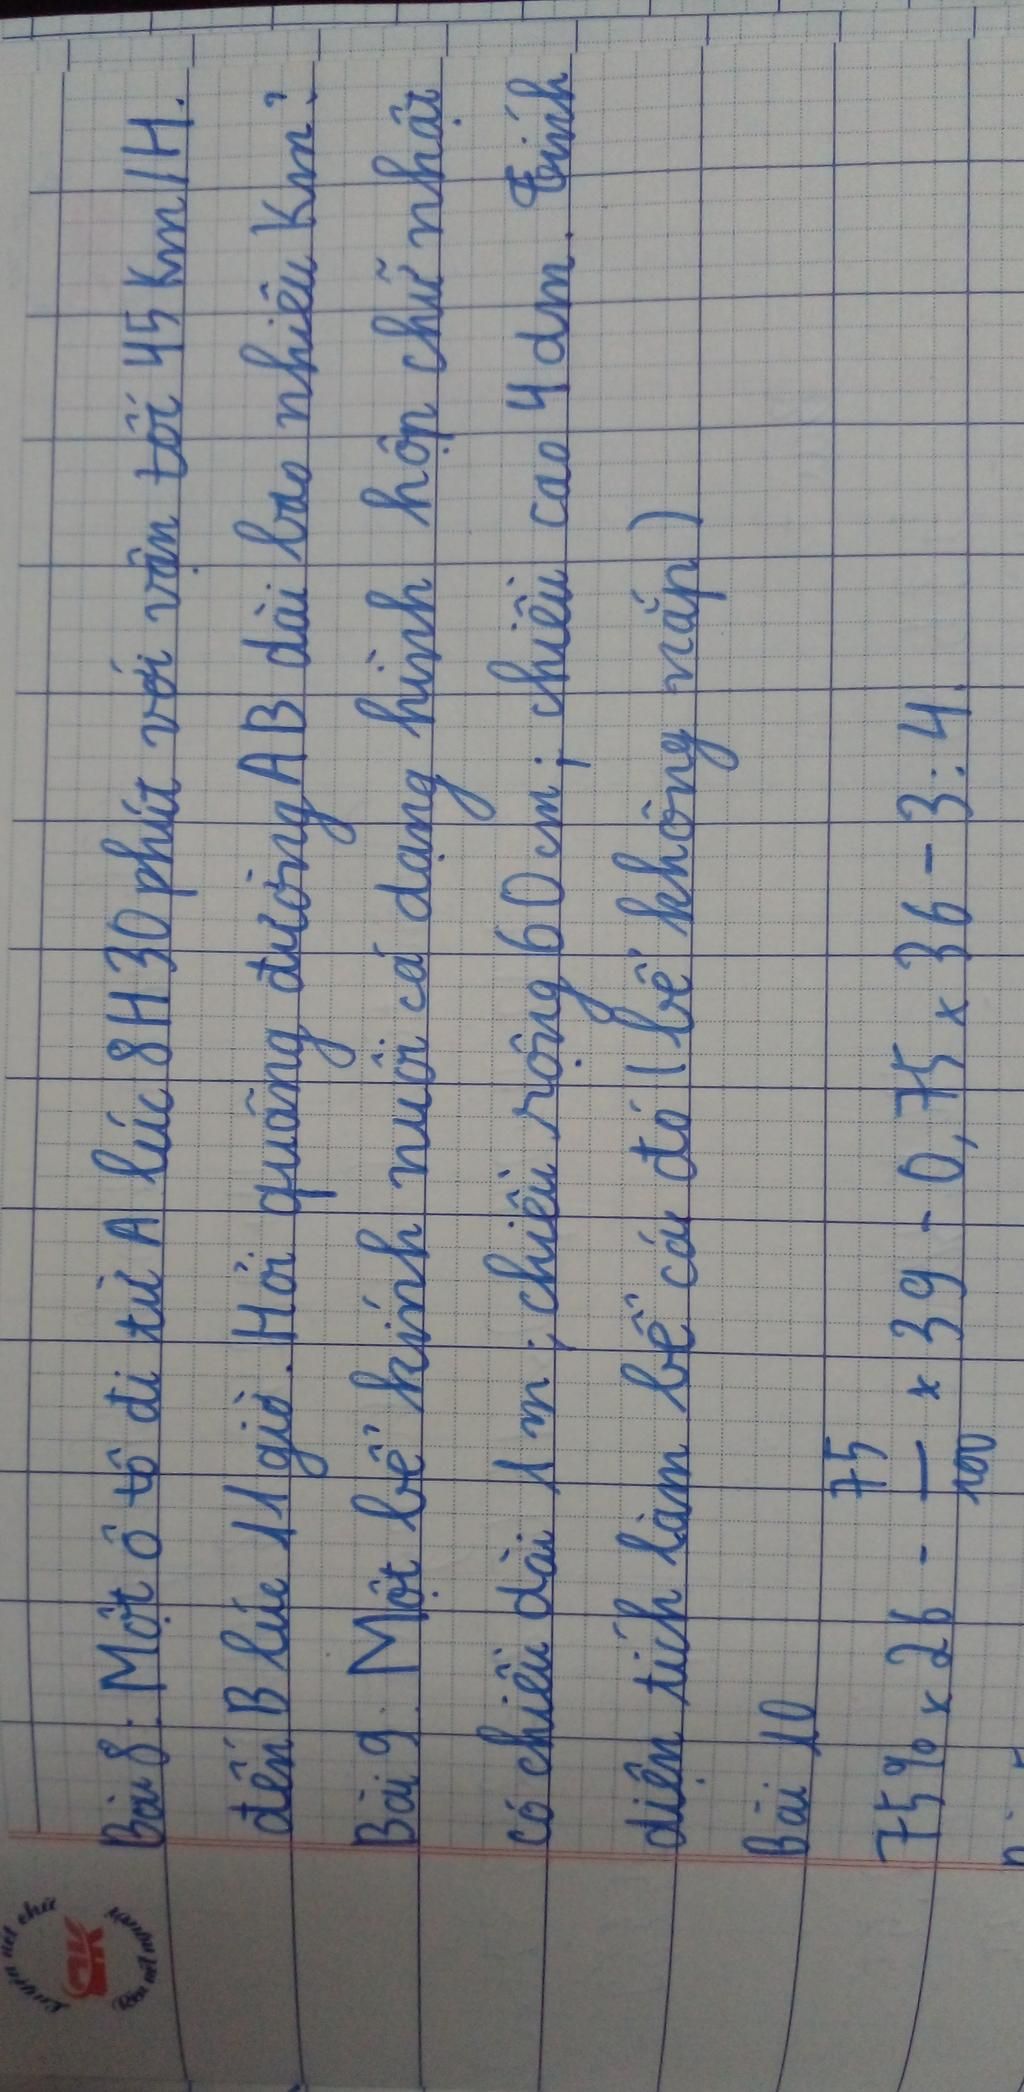 Bài 8. Một ô tô đi từ A lúc 8H 30 phút với vận tốc 45 Km/H.
đến B lúc 11 giờ. Hỏi quãng đường AB dài bao nhiêu Km?
Bài 9. Một bể kính nuôi cá dạng hình hộp chữ nhật
có chiều dài 1 m; chiều rộng 60 cm; chiều cao 4 dm. Tính
diện tích làm bể cá đó (bể không nắp)
Bài 10
75% x 26 - 75/100 x 39 - 0,75 x 36 - 3:4.